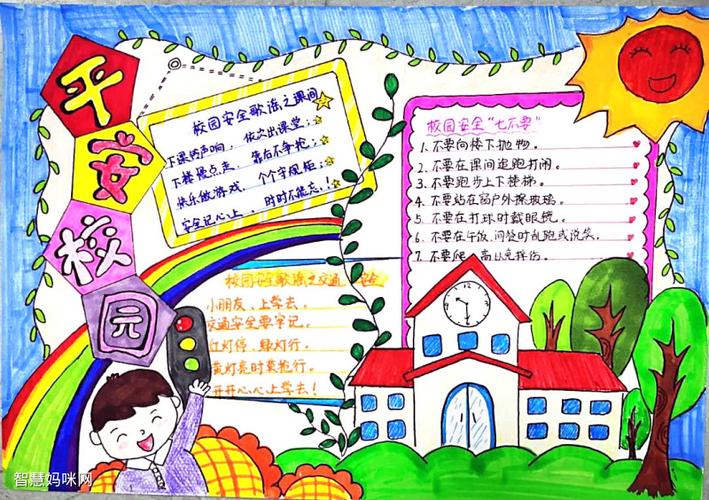 平
安
校
园
校园安全歌谣之课间
下课铃声响，依次出课堂；
下楼慢点走，靠右不争抢；
快乐做游戏，个个守规矩；
安全记心上，时时不能忘！
校园安全“七不要”
1、不要向楼下抛物。
2、不要在课间追跑打闹。
3、不要跑步上下楼梯。
4、不要站在窗户外擦玻璃。
5、不要在打球时戴眼镜。
6、不要在午饭、间餐时乱跑或说笑。
7、不要爬高以免摔伤。
校园安全歌谣之交通安全
小朋友、上学去。
交通安全要牢记。
红灯停、绿灯行。
黄灯亮时莫抢行。
开开心心上学去！
智慧妈咪网